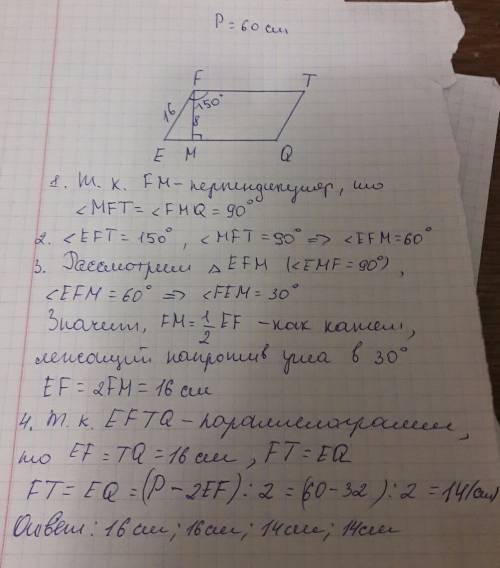 P = 60 см
F T
16 150°
8
E M Q
1. Т. к. FM - перпендикуляр, то
∠MFT = ∠FMQ = 90°
2. ∠EFT = 150°, ∠MFT = 90° => ∠EFM = 60°
3. Рассмотрим △EFM (∠EMF = 90°),
∠EFM = 60° => ∠FEM = 30°
Значит, FM = 1/2 EF - как катет,
лежащий напротив угла в 30°
EF = 2FM = 16 см
4. Т. к. EFTQ - параллелограмм,
то EF = TQ = 16 см, FT = EQ
FT = EQ = (P - 2EF) : 2 = (60 - 32) : 2 = 14 (см)
Ответ: 16 см; 16 см; 14 см; 14 см